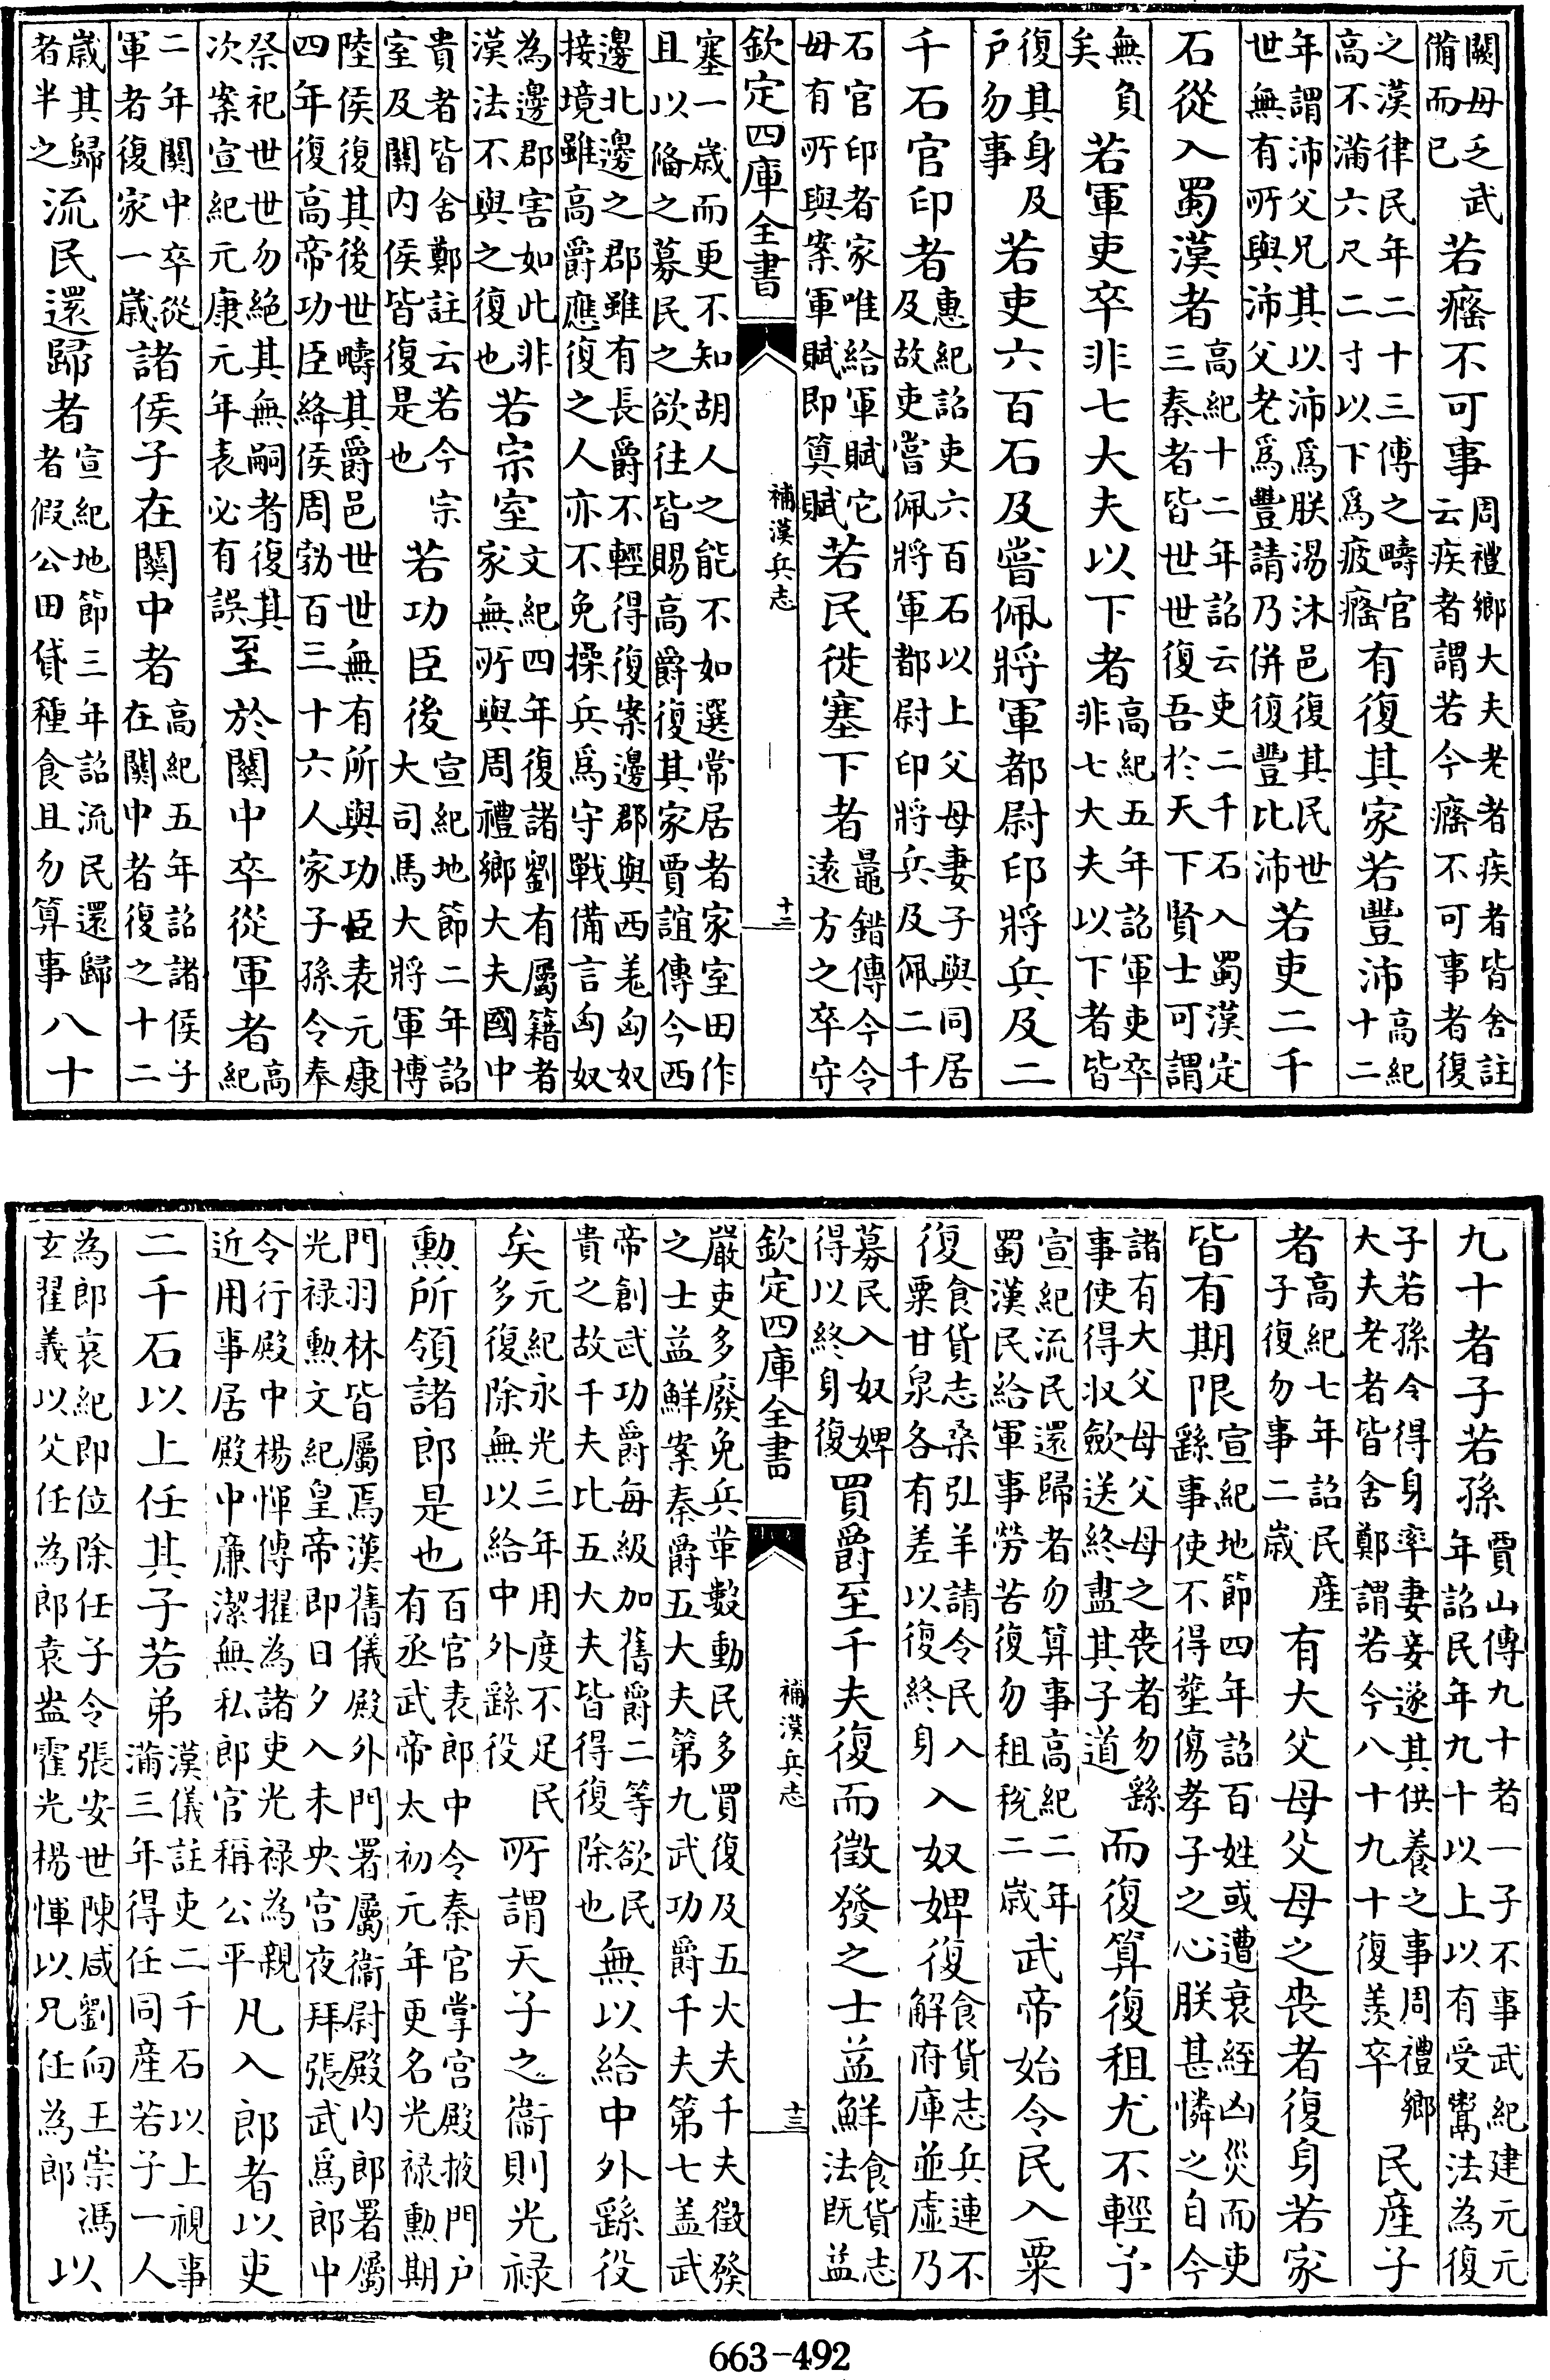 闕毋乏武備而已若癃不可事周禮鄉大夫老者疾者皆舍註云疾者謂若今癃不可事者復
之漢律民年二十三傅之疇官高不滿六尺二寸以下爲疲癃有復其家若豐沛高紀十二
年謂沛父兄其以沛爲朕湯沐邑復其民世世無有所與沛父老爲豐請乃併復豐比沛若吏二千
石從入蜀漢者高紀十二年詔云吏二千石入蜀漢定三秦者皆世世復吾於天下賢士可謂
無負矣若軍吏卒非七大夫以下者高紀五年詔軍吏卒非七大夫以下者皆
復其身及戶勿事若吏六百石及嘗佩將軍都尉印將兵及二
千石官印者惠紀詔吏六百石以上父母妻子與同居及故吏嘗佩將軍都尉印將兵及佩二千
石官印者家唯給軍賦它毋有所與案軍賦即算賦若民徙塞下者鼂錯傳今令遠方之卒守
欽定四庫全書 補漢兵志 十二
塞一歲而更不知胡人之能不如選常居者家室田作且以備之募民之欲往皆賜高爵復其家賈誼傳今西
邊北邊之郡雖有長爵不輕得復案邊郡與西羌匈奴接境雖高爵應復之人亦不免操兵爲守戰備言匈奴
為邊郡害如此非漢法不與之復也若宗室文紀四年復諸劉有屬籍者家無所與周禮鄉大夫國中
貴者皆舍鄭註云若今宗室及關內侯皆復是也若功臣後宣紀地節二年詔大司馬大將軍博
陸侯復其後世疇其爵邑世世無有所與功臣表元康四年復高帝功臣絳侯周勃百三十六人家子孫令奉
祭祀世世勿絕其無嗣者復其次案宣紀元康元年表必有誤至於關中卒從軍者高紀
二年關中卒從軍者復家一歲諸侯子在關中者高紀五年詔諸侯子在關中者復之十二
歲其歸者半之流民還歸者宣紀地節三年詔流民還歸者假公田貸種食且勿算事八十
九十者子若孫賈山傳九十者一子不事武紀建元元年詔民年九十以上以有受鬻法為復
子若孫令得身率妻妾遂其供養之事周禮鄉大夫老者皆舍鄭謂若今八十九十復羨卒民產子
者高紀七年詔民產子復勿事二歲有大父母父母之喪者復身若家
皆有期限宣紀地節四年詔百姓或遭衰絰凶災而吏繇事使不得葬傷孝子之心朕甚憐之自今
諸有大父母父母之喪者勿繇事使得收斂送終盡其子道而復算復租尤不輕予
宣紀流民還歸者勿算事高紀二年蜀漢民給軍事勞苦復勿租稅二歲武帝始令民入粟
復食貨志桑弘羊請令民入粟甘泉各有差以復終身入奴婢復食貨志兵連不解府庫並虛乃
募民入奴婢得以終身復買爵至千夫復而徵發之士益鮮食貨志法既益
欽定四庫全書 補漢兵志 十三
嚴吏多廢免兵革數動民多買復及五大夫千夫徵發之士益鮮案秦爵五大夫第九武功爵千夫第七蓋武
帝創武功爵每級加舊爵二等欲民貴之故千夫比五大夫皆得復除也無以給中外繇役
矣元紀永光三年用度不足民多復除無以給中外繇役所謂天子之衞則光祿
勲所領諸郎是也百官表郎中令秦官掌宮殿掖門戶有丞武帝太初元年更名光祿勲期
門羽林皆屬焉漢舊儀殿外門署屬衞尉殿內郎署屬光祿勲文紀皇帝即日夕入未央宮夜拜張武爲郎中
令行殿中楊惲傳擢為諸吏光祿為親近用事居殿中廉潔無私郎官稱公平凡入郎者以吏
二千石以上任其子若弟漢儀註吏二千石以上視事滿三年得任同產若子一人
為郎哀紀即位除任子令張安世陳咸劉向王崇馮玄翟義以父任為郎袁盎霍光楊惲以兄任為郎以
663-492